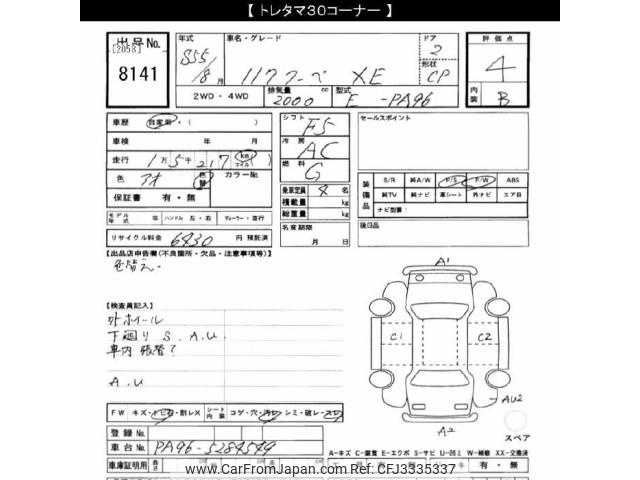 【 トレタマ30コーナー 】
出品No. [2058] 8141
年式 S55/8月 車名・グレード 117クーペ XE ドア 2 形状 CP
評価点 4 内装 B
2WD・4WD 排気量 2000 cc 型式 E-PA96
車歴 自家用・( )
車検 年 月
走行 1万5千217 km マイル
色 アオ 色替 カラーNo.
保証書 有・無
モデル年式 年 ハンドル 左・右 ディーラー・並行
リサイクル料金 6830 円 預託済
シフト F5
冷房 AC
燃料 G
乗車定員 4 名
積載量 kg
総重量 kg
名変期限 月 日
セールスポイント
装備品 S/R 純A/W P/S P/W ABS
純TV 純ナビ 革シート 外ナビ エア日
ナビ型番:
後日品
【出品店申告欄(不良箇所・欠品・注意事項等)】
色替え.
【検査員記入】
外ホイール
下廻り S.A.U.
車内 張替?
A.U
FW キズ・トビ石・割レX シート内装 コゲ・穴・汚レ・シミ・破レ・スレ
登録No.
車台No. PA96-5284549
車庫証明用
A1
C1 C2
AU2
A2
スペア
A-キズ C-腐食 E-エクボ S-サビ U-凹ミ W-補修 XX-交換済
有・無
www.CarFromJapan.com Ref:CFJ3535337